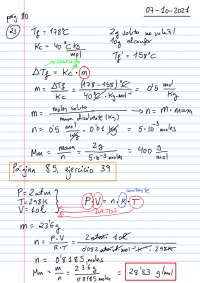 pág 80
07-10-2021
23
Tf = 178ºC
2g soluto no volátil
Kc = 40 ºC kg / mol
10g alcanfor
Tf' = 158ºC
constante
ΔTf = Kc · m
m = ΔTf / Kc = (178-158) ºC / 40 ºC·kg·mol⁻¹ = 0'5 mol/Kg
m = moles soluto / masa disolvente (kg) → n = m · masa
n = 0'5 mol/kg · 0'01 kg = 5·10⁻³ moles
Mm = masa / n = 2g / 5·10⁻³ moles = 400 g/mol
Página 85, ejercicio 39
P = 2atm
T = 298K
V = 10l
constante
P · V = n · R · T
m = 23'6g
n = P·V / R·T = 2atm · 10l / 0'082 atm·l·mol⁻¹·K⁻¹ · 298K
n = 0'8185 moles
Mm = m / n = 23'6g / 0'8185 moles = 28'83 g/mol